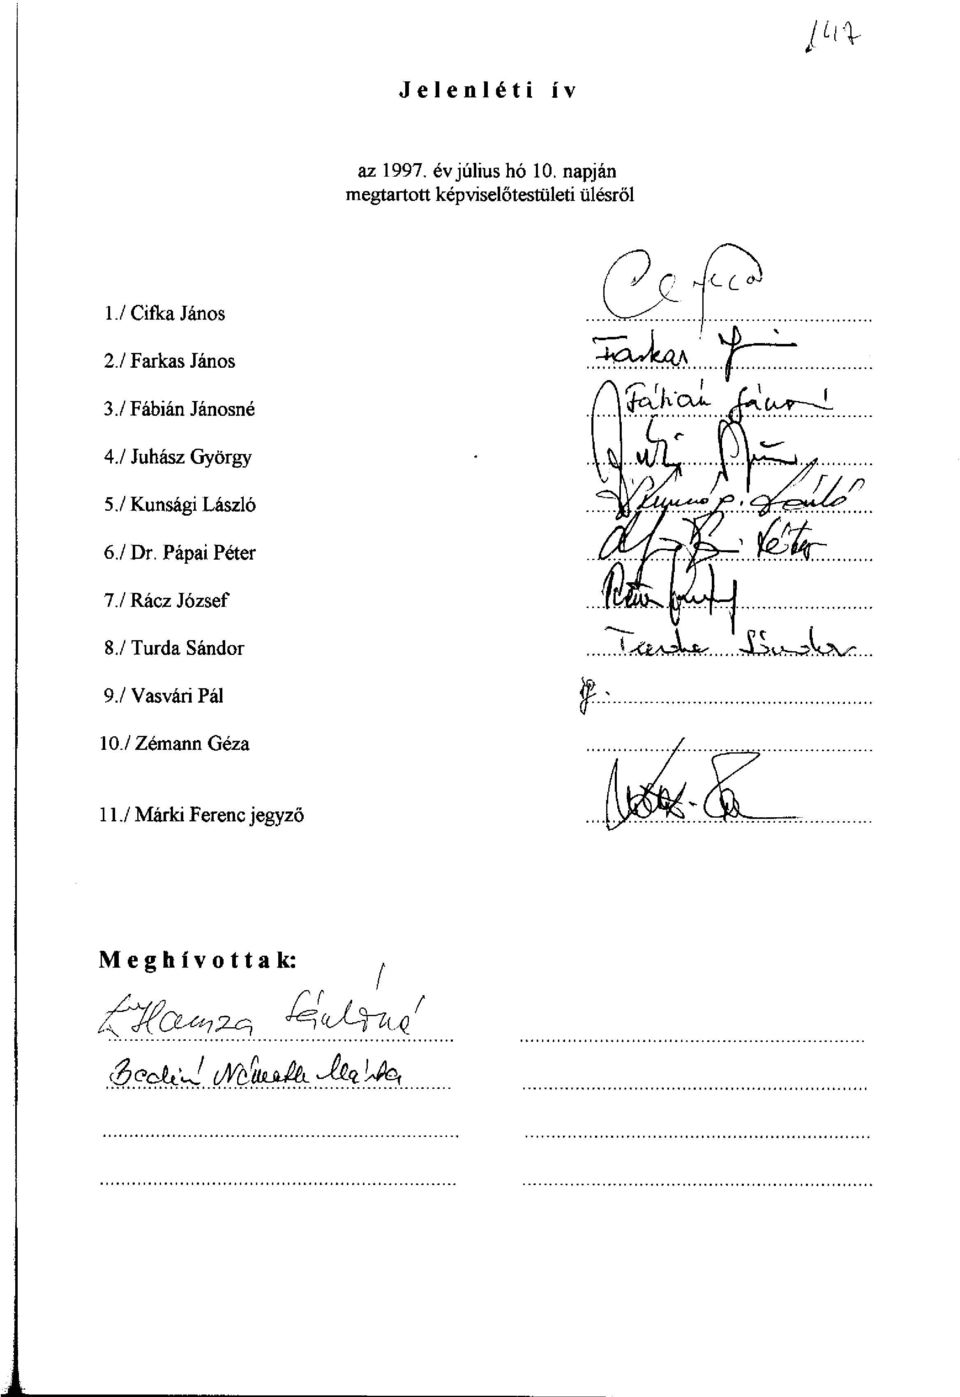 147
Jelenléti ív
az 1997. év július hó 10. napján
megtartott képviselőtestületi ülésről
1./ Cifka János
2./ Farkas János Farkas
3./ Fábián Jánosné Fábián Jánosné
4./ Juhász György
5./ Kunsági László Kunsági László
6./ Dr. Pápai Péter Péter
7./ Rácz József
8./ Turda Sándor Turda Sándor
9./ Vasvári Pál
10./ Zémann Géza
11./ Márki Ferenc jegyző
Meghívottak:
Hamza
Németh Márta